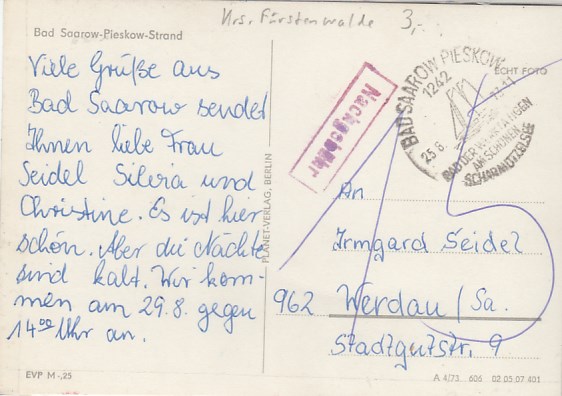 Krs. Fürstenwalde 3,-
Bad Saarow-Pieskow-Strand
Viele Grüße aus
Bad Saarow sendet
Ihnen liebe Frau
Seidel Silvia und
Christine. Es ist hier
schön. Aber die Nächte
sind kalt. Wir kom-
men am 29.8. gegen
14⁰⁰ Uhr an.
EVP M -,25
PLANET-VERLAG, BERLIN
Nachgebühr
BAD SAAROW PIESKOW
1242
25.8.
-11
BAD DER WERKTÄTIGEN
AM SCHÖNEN
SCHARMÜTZELSEE
ECHT FOTO
An
Irmgard Seidel
962 Werdau / Sa.
Stadtgutstr. 9
A 4/73 606 02 05 07 401